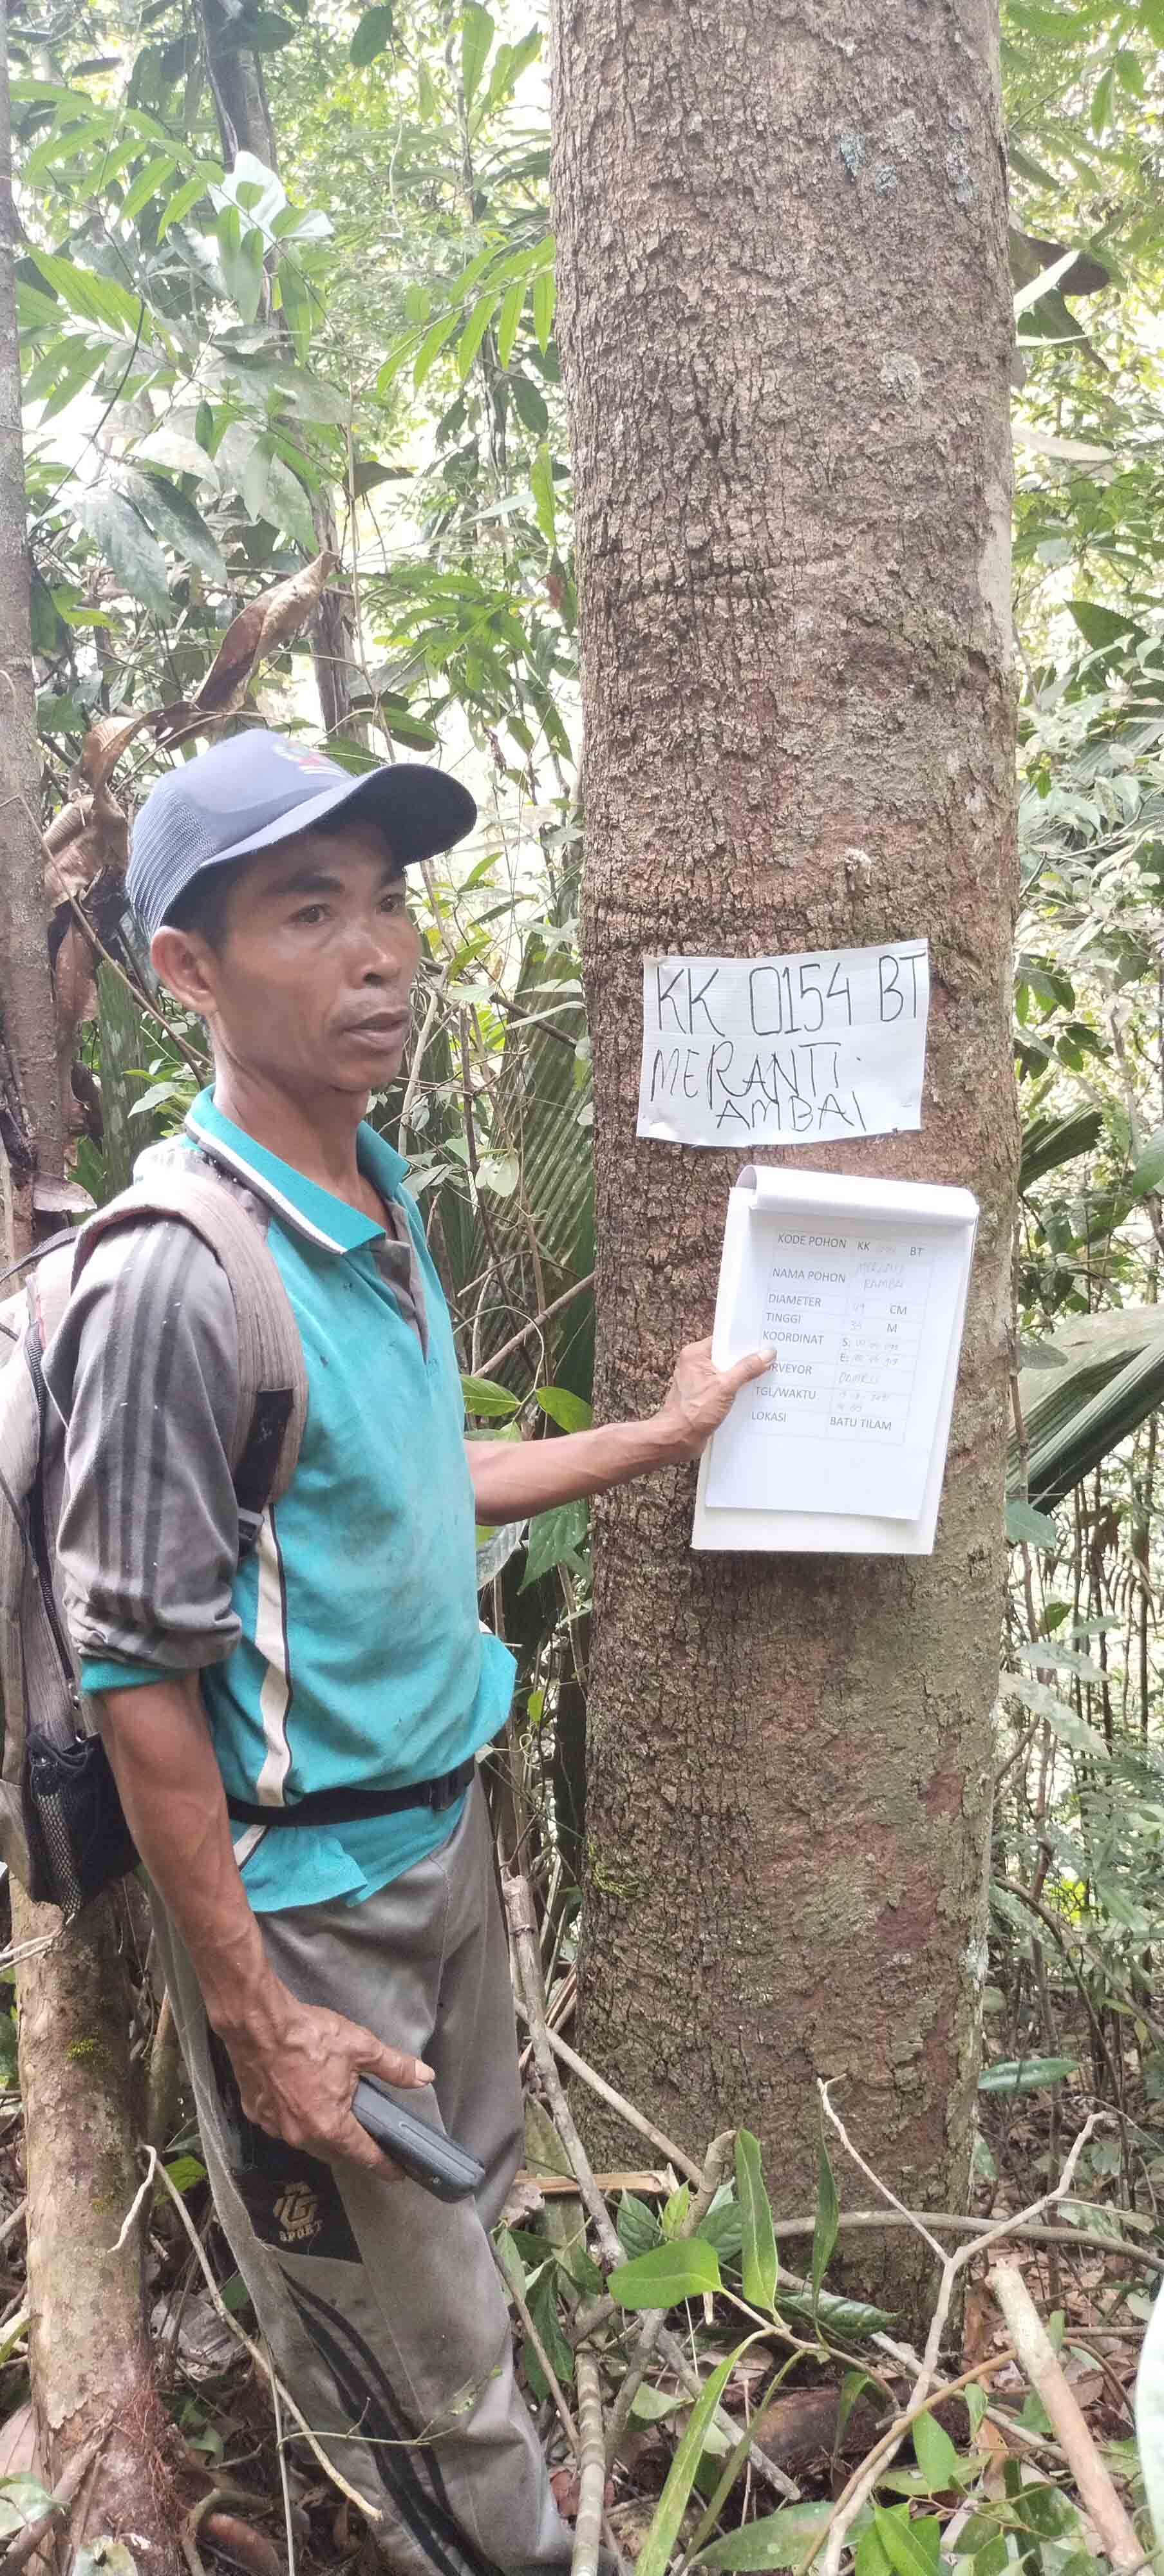 KK 0154 BT
MERANTI
AMBAI
KODE POHON KK BT
NAMA POHON MERANTI
DIAMETER 49 CM
TINGGI M
KOORDINAT S:
E:
RVEYOR
TGL/WAKTU
LOKASI BATU TILAM
SPORT